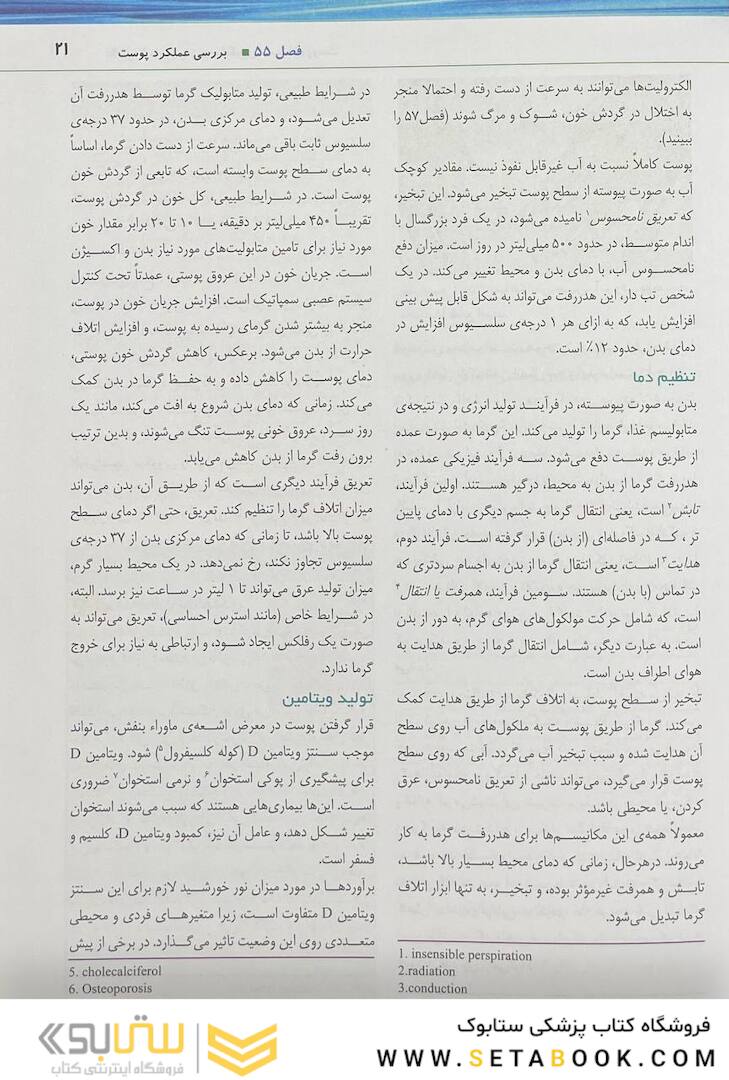 فصل ۵۵ ■ بررسی عملکرد پوست
۲۱
الکترولیت‌ها می‌توانند به سرعت از دست رفته و احتمالا منجر
به اختلال در گردش خون، شوک و مرگ شوند (فصل۵۷ را
ببینید).
پوست کاملاً نسبت به آب غیرقابل نفوذ نیست. مقادیر کوچک
آب به صورت پیوسته از سطح پوست تبخیر می‌شود. این تبخیر،
که تعریق نامحسوس۱ نامیده می‌شود، در یک فرد بزرگسال با
اندام متوسط، در حدود ۵۰۰ میلی‌لیتر در روز است. میزان دفع
نامحسوس آب، با دمای بدن و محیط تغییر می‌کند. در یک
شخص تب دار، این هدررفت می‌تواند به شکل قابل پیش بینی
افزایش یابد، که به ازای هر ۱ درجه‌ی سلسیوس افزایش در
دمای بدن، حدود ۱۲٪ است.
تنظیم دما
بدن به صورت پیوسته، در فرآیند تولید انرژی و در نتیجه‌ی
متابولیسم غذا، گرما را تولید می‌کند. این گرما به صورت عمده
از طریق پوست دفع می‌شود. سه فرآیند فیزیکی عمده، در
هدررفت گرما از بدن به محیط، درگیر هستند. اولین فرآیند،
تابش۲ است، یعنی انتقال گرما به جسم دیگری با دمای پایین
تر، که در فاصله‌ای (از بدن) قرار گرفته است. فرآیند دوم،
هدایت۳ است، یعنی انتقال گرما از بدن به اجسام سردتری که
در تماس (با بدن) هستند. سومین فرآیند، همرفت یا انتقال۴
است، که شامل حرکت مولکول‌های هوای گرم، به دور از بدن
است. به عبارت دیگر، شامل انتقال گرما از طریق هدایت به
هوای اطراف بدن است.
تبخیر از سطح پوست، به اتلاف گرما از طریق هدایت کمک
می‌کند. گرما از طریق پوست به ملکول‌های آب روی سطح
آن هدایت شده و سبب تبخیر آب می‌گردد. آبی که روی سطح
پوست قرار می‌گیرد، می‌تواند ناشی از تعریق نامحسوس، عرق
کردن، یا محیطی باشد.
معمولاً همه‌ی این مکانیسم‌ها برای هدررفت گرما به کار
می‌روند. درهرحال، زمانی که دمای محیط بسیار بالا باشد،
تابش و همرفت غیرمؤثر بوده، و تبخیر، به تنها ابزار اتلاف
گرما تبدیل می‌شود.
1. insensible perspiration
2.radiation
3.conduction
در شرایط طبیعی، تولید متابولیک گرما توسط هدررفت آن
تعدیل می‌شود، و دمای مرکزی بدن، در حدود ۳۷ درجه‌ی
سلسیوس ثابت باقی می‌ماند. سرعت از دست دادن گرما، اساساً
به دمای سطح پوست وابسته است، که تابعی از گردش خون
پوست است. در شرایط طبیعی، کل خون در گردش پوست،
تقریباً ۴۵۰ میلی‌لیتر بر دقیقه، یا ۱۰ تا ۲۰ برابر مقدار خون
مورد نیاز برای تامین متابولیت‌های مورد نیاز بدن و اکسیژن
است. جریان خون در این عروق پوستی، عمدتاً تحت کنترل
سیستم عصبی سمپاتیک است. افزایش جریان خون در پوست،
منجر به بیشتر شدن گرمای رسیده به پوست، و افزایش اتلاف
حرارت از بدن می‌شود. برعکس، کاهش گردش خون پوستی،
دمای پوست را کاهش داده و به حفظ گرما در بدن کمک
می‌کند. زمانی که دمای بدن شروع به افت می‌کند، مانند یک
روز سرد، عروق خونی پوست تنگ می‌شوند، و بدین ترتیب
برون رفت گرما از بدن کاهش می‌یابد.
تعریق فرآیند دیگری است که از طریق آن، بدن می‌تواند
میزان اتلاف گرما را تنظیم کند. تعریق، حتی اگر دمای سطح
پوست بالا باشد، تا زمانی که دمای مرکزی بدن از ۳۷ درجه‌ی
سلسیوس تجاوز نکند، رخ نمی‌دهد. در یک محیط بسیار گرم،
میزان تولید عرق می‌تواند تا ۱ لیتر در ساعت نیز برسد. البته،
در شرایط خاص (مانند استرس احساسی)، تعریق می‌تواند به
صورت یک رفلکس ایجاد شود، و ارتباطی به نیاز برای خروج
گرما ندارد.
تولید ویتامین
قرار گرفتن پوست در معرض اشعه‌ی ماوراء بنفش، می‌تواند
موجب سنتز ویتامین D (کوله کلسیفرول۵) شود. ویتامین D
برای پیشگیری از پوکی استخوان۶ و نرمی استخوان۷ ضروری
است. این‌ها بیماری‌هایی هستند که سبب می‌شوند استخوان
تغییر شکل دهد، و عامل آن نیز، کمبود ویتامین D، کلسیم و
فسفر است.
برآوردها در مورد میزان نور خورشید لازم برای این سنتز
ویتامین D متفاوت است، زیرا متغیرهای فردی و محیطی
متعددی روی این وضعیت تاثیر می‌گذارد. در برخی از پیش
5. cholecalciferol
6. Osteoporosis
فروشگاه کتاب پزشکی ستابوک
WWW.SETABOOK.COM
ستابوک
فروشگاه اینترنتی کتاب